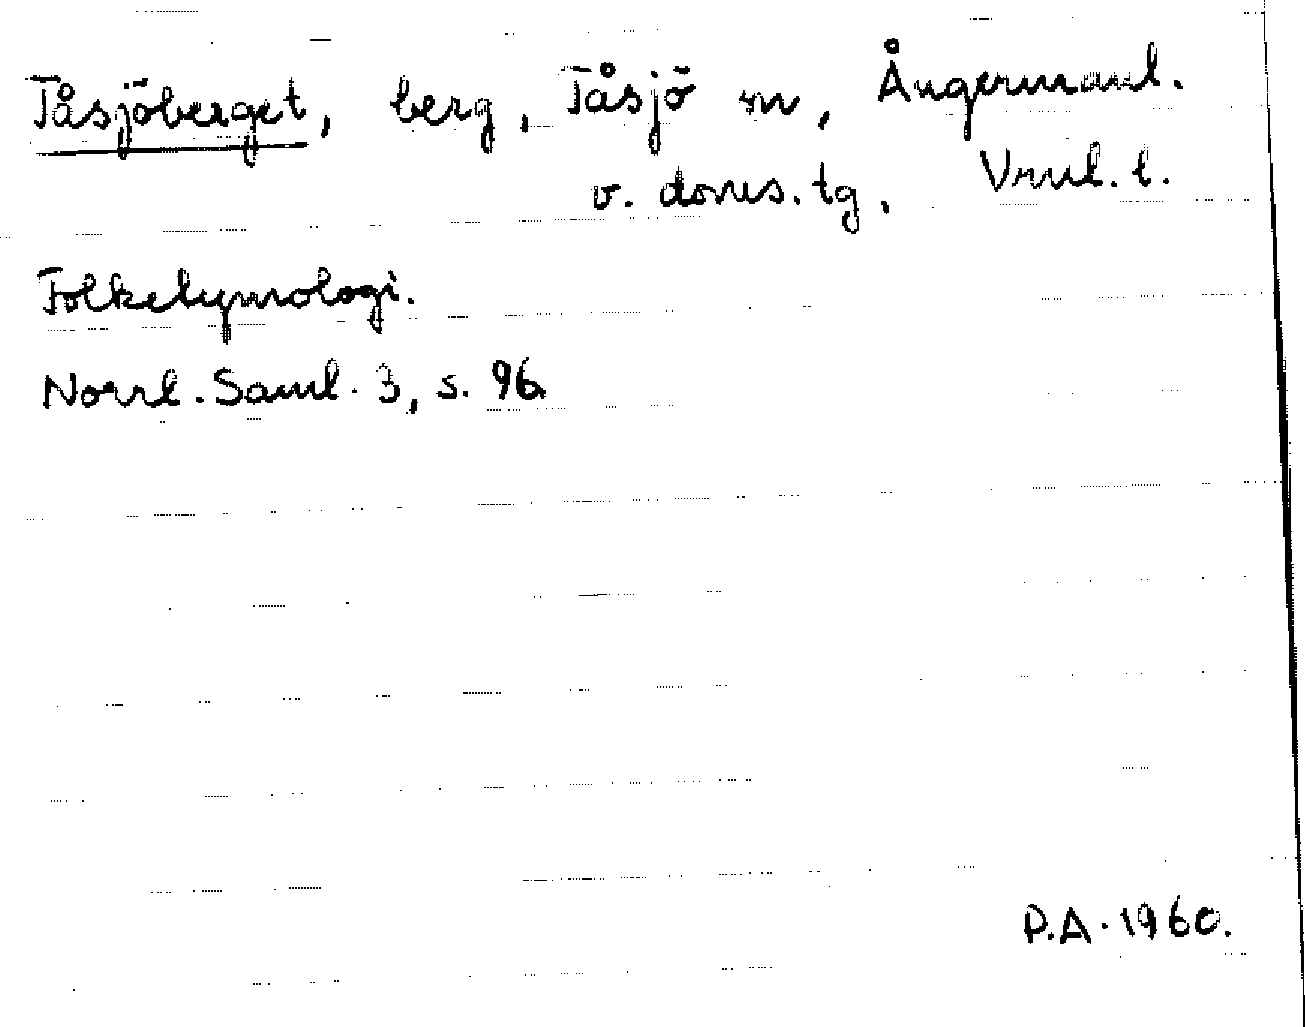 Tåsjöberget, berg, Tåsjö sn, Ångermanl.
v. doms. tg. Vrml. l.
Folketymologi.
Norrl. Saml. 3, s. 96.
P.A. 1960.